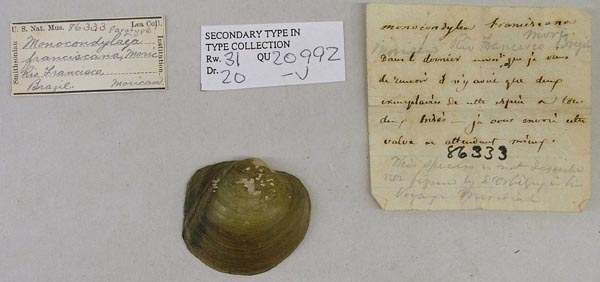 U. S. Nat. Mus. 86333 Lea Coll.
Paratype
Smithsonian Institution.
Monocondylaea
franciscana, Moric
Rio Francisco
Brazil Morican
SECONDARY TYPE IN
TYPE COLLECTION
Rw. 31 QU 20992
Dr. 20 -V
monocondylea franciscana
Moric
Rio Francisco Brazil
Dans le dernier envoi que je viens
de recevoir il n'y avait que deux
exemplaires de cette espèce
deux brisés - je vous envoie cette
valve en attendant mieux
86333
This species is not described
nor figured by d'Orbigny in his
Voyage